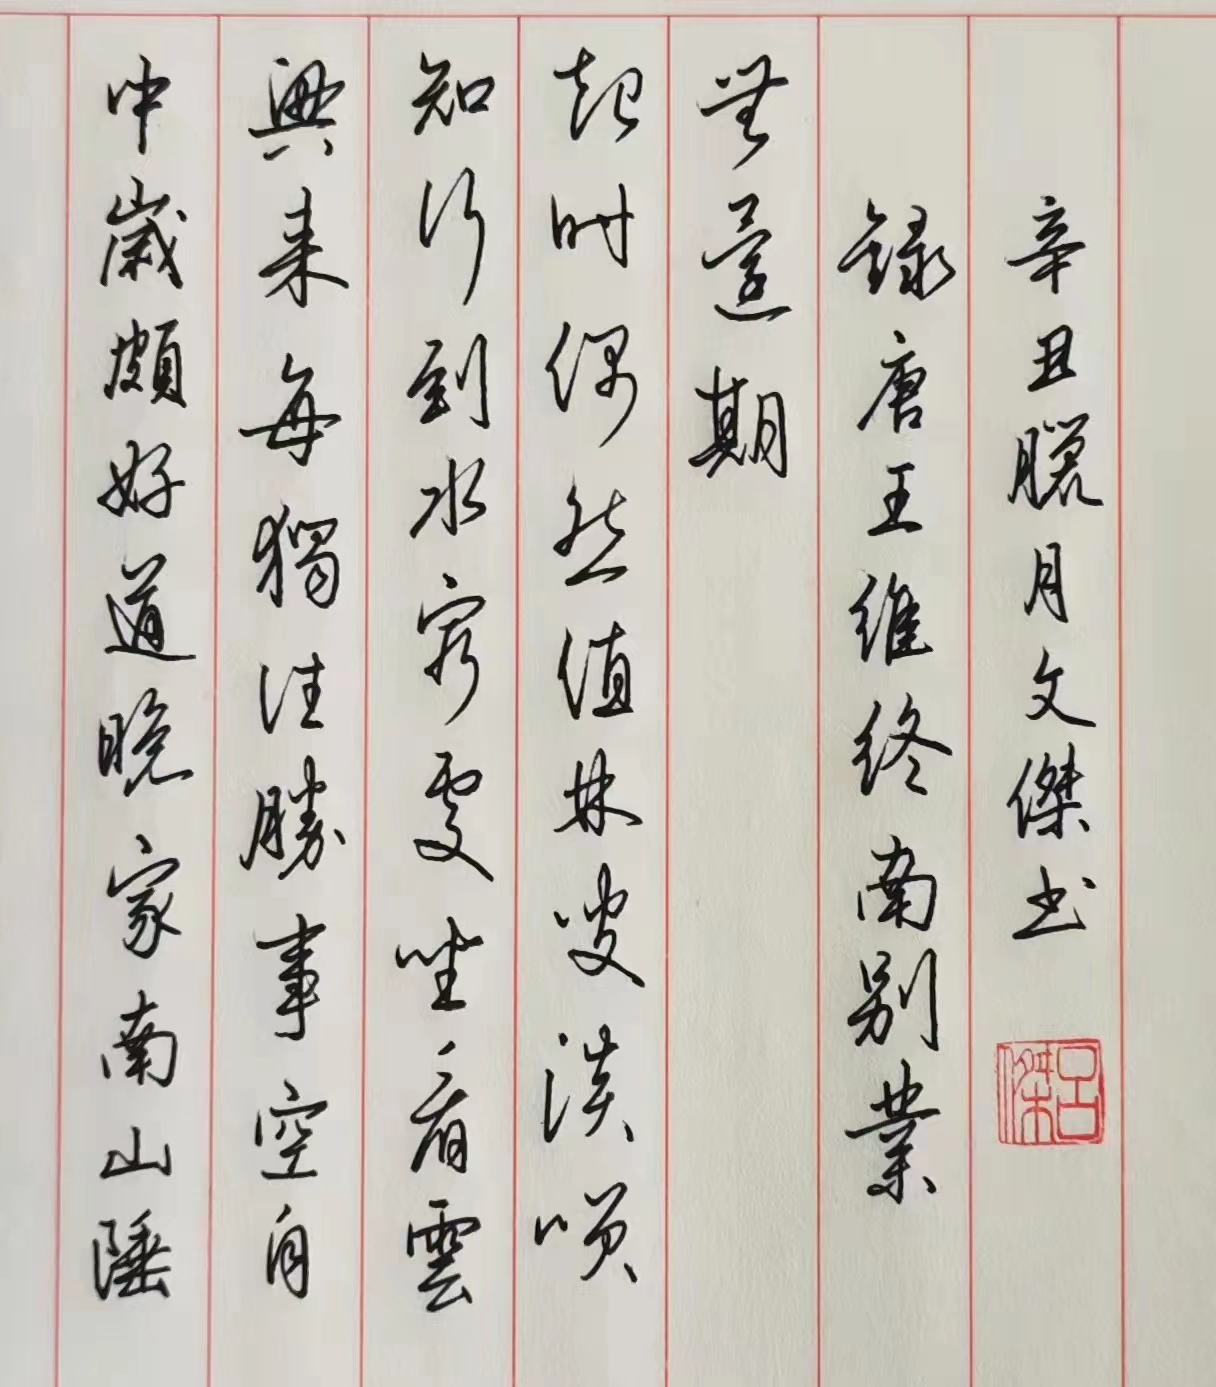 中歲頗好道晚家南山陲
興来每獨往勝事空自
知行到水窮處坐看雲
起时偶然值林叟淡唄
無還期
録唐王維終南别業
辛丑臘月文傑书
呂傑